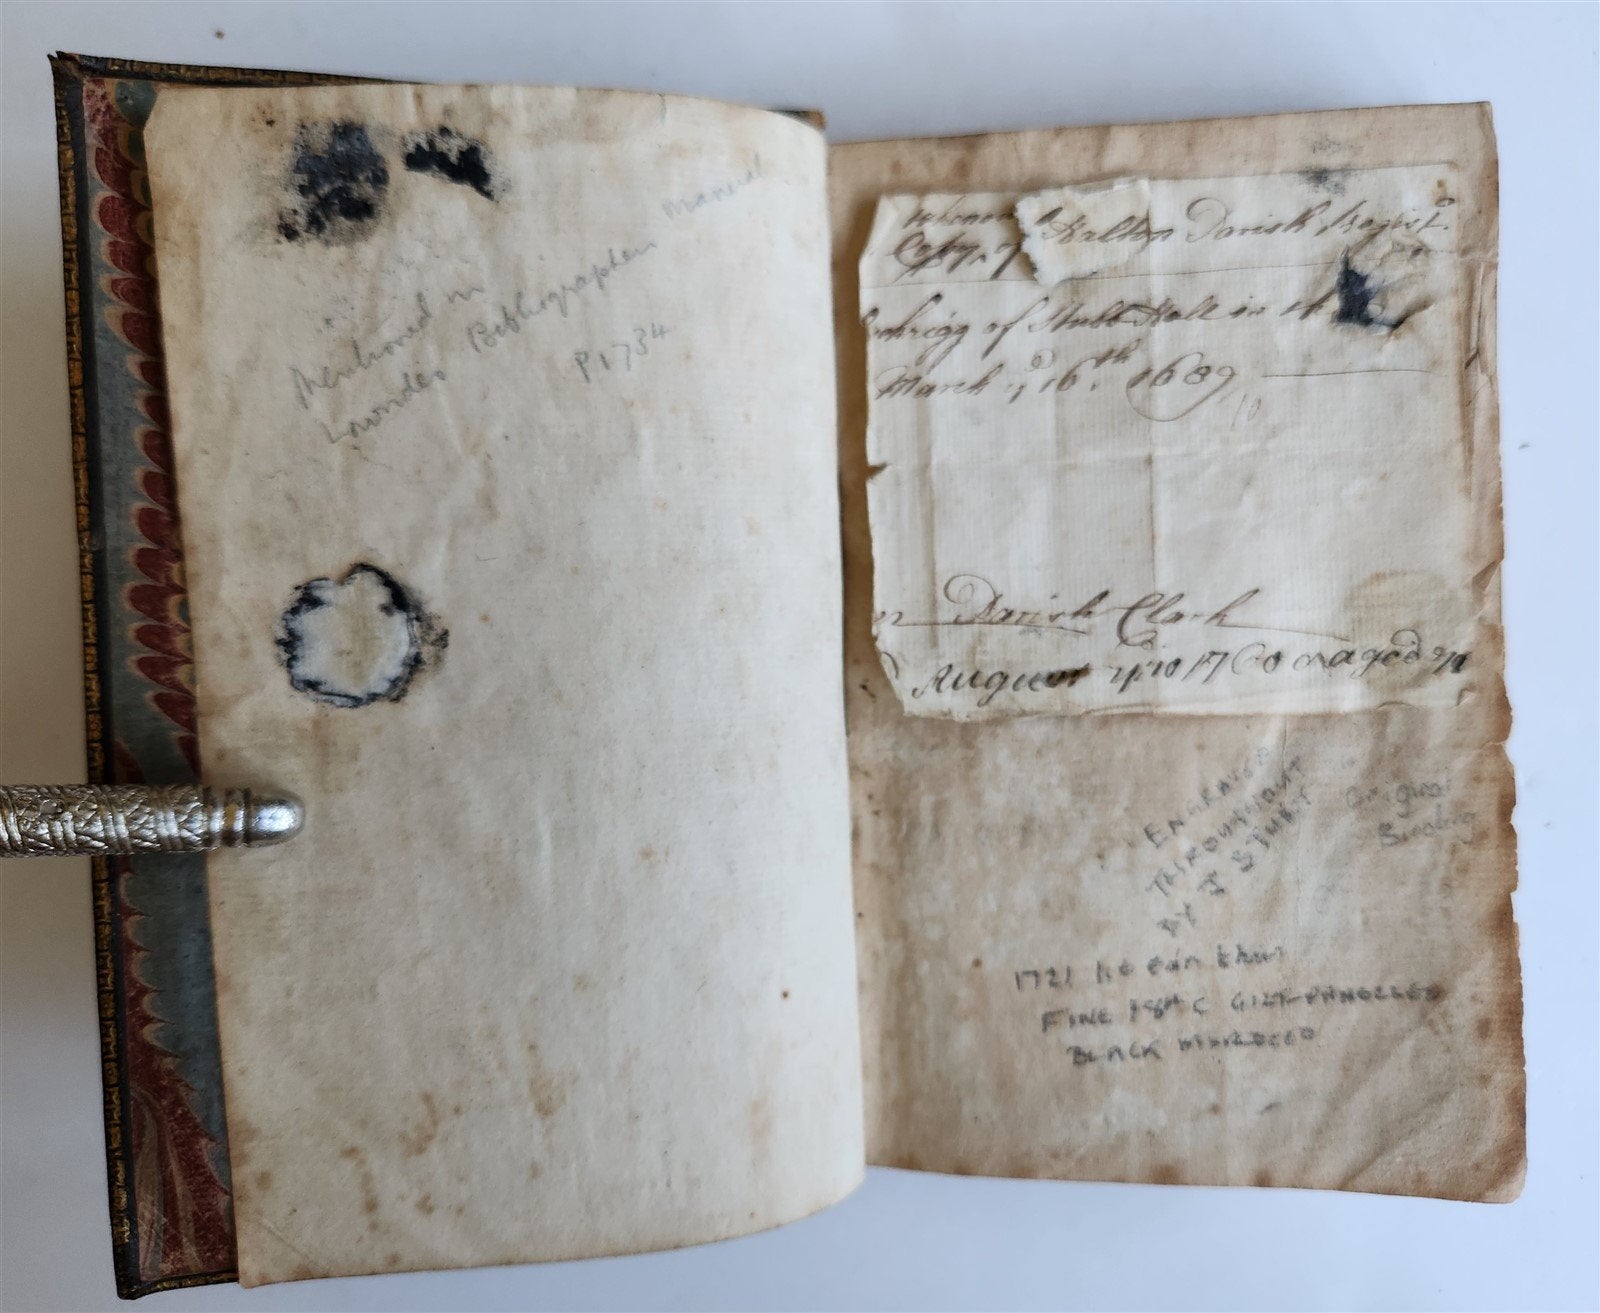 Mentioned in
Lowndes Bibliographers Manual
P1734
Copy of Halton Parish Regist.
of Stubb Hall in th
March ye 16th 1689
10
Parish Clark
August ye 10 1760 aged
ENGRAVED
THROUGHOUT
BY J STURT
Original
Binding
1721
FINE 18th C GILT PANELLED
BLACK MOROCCO